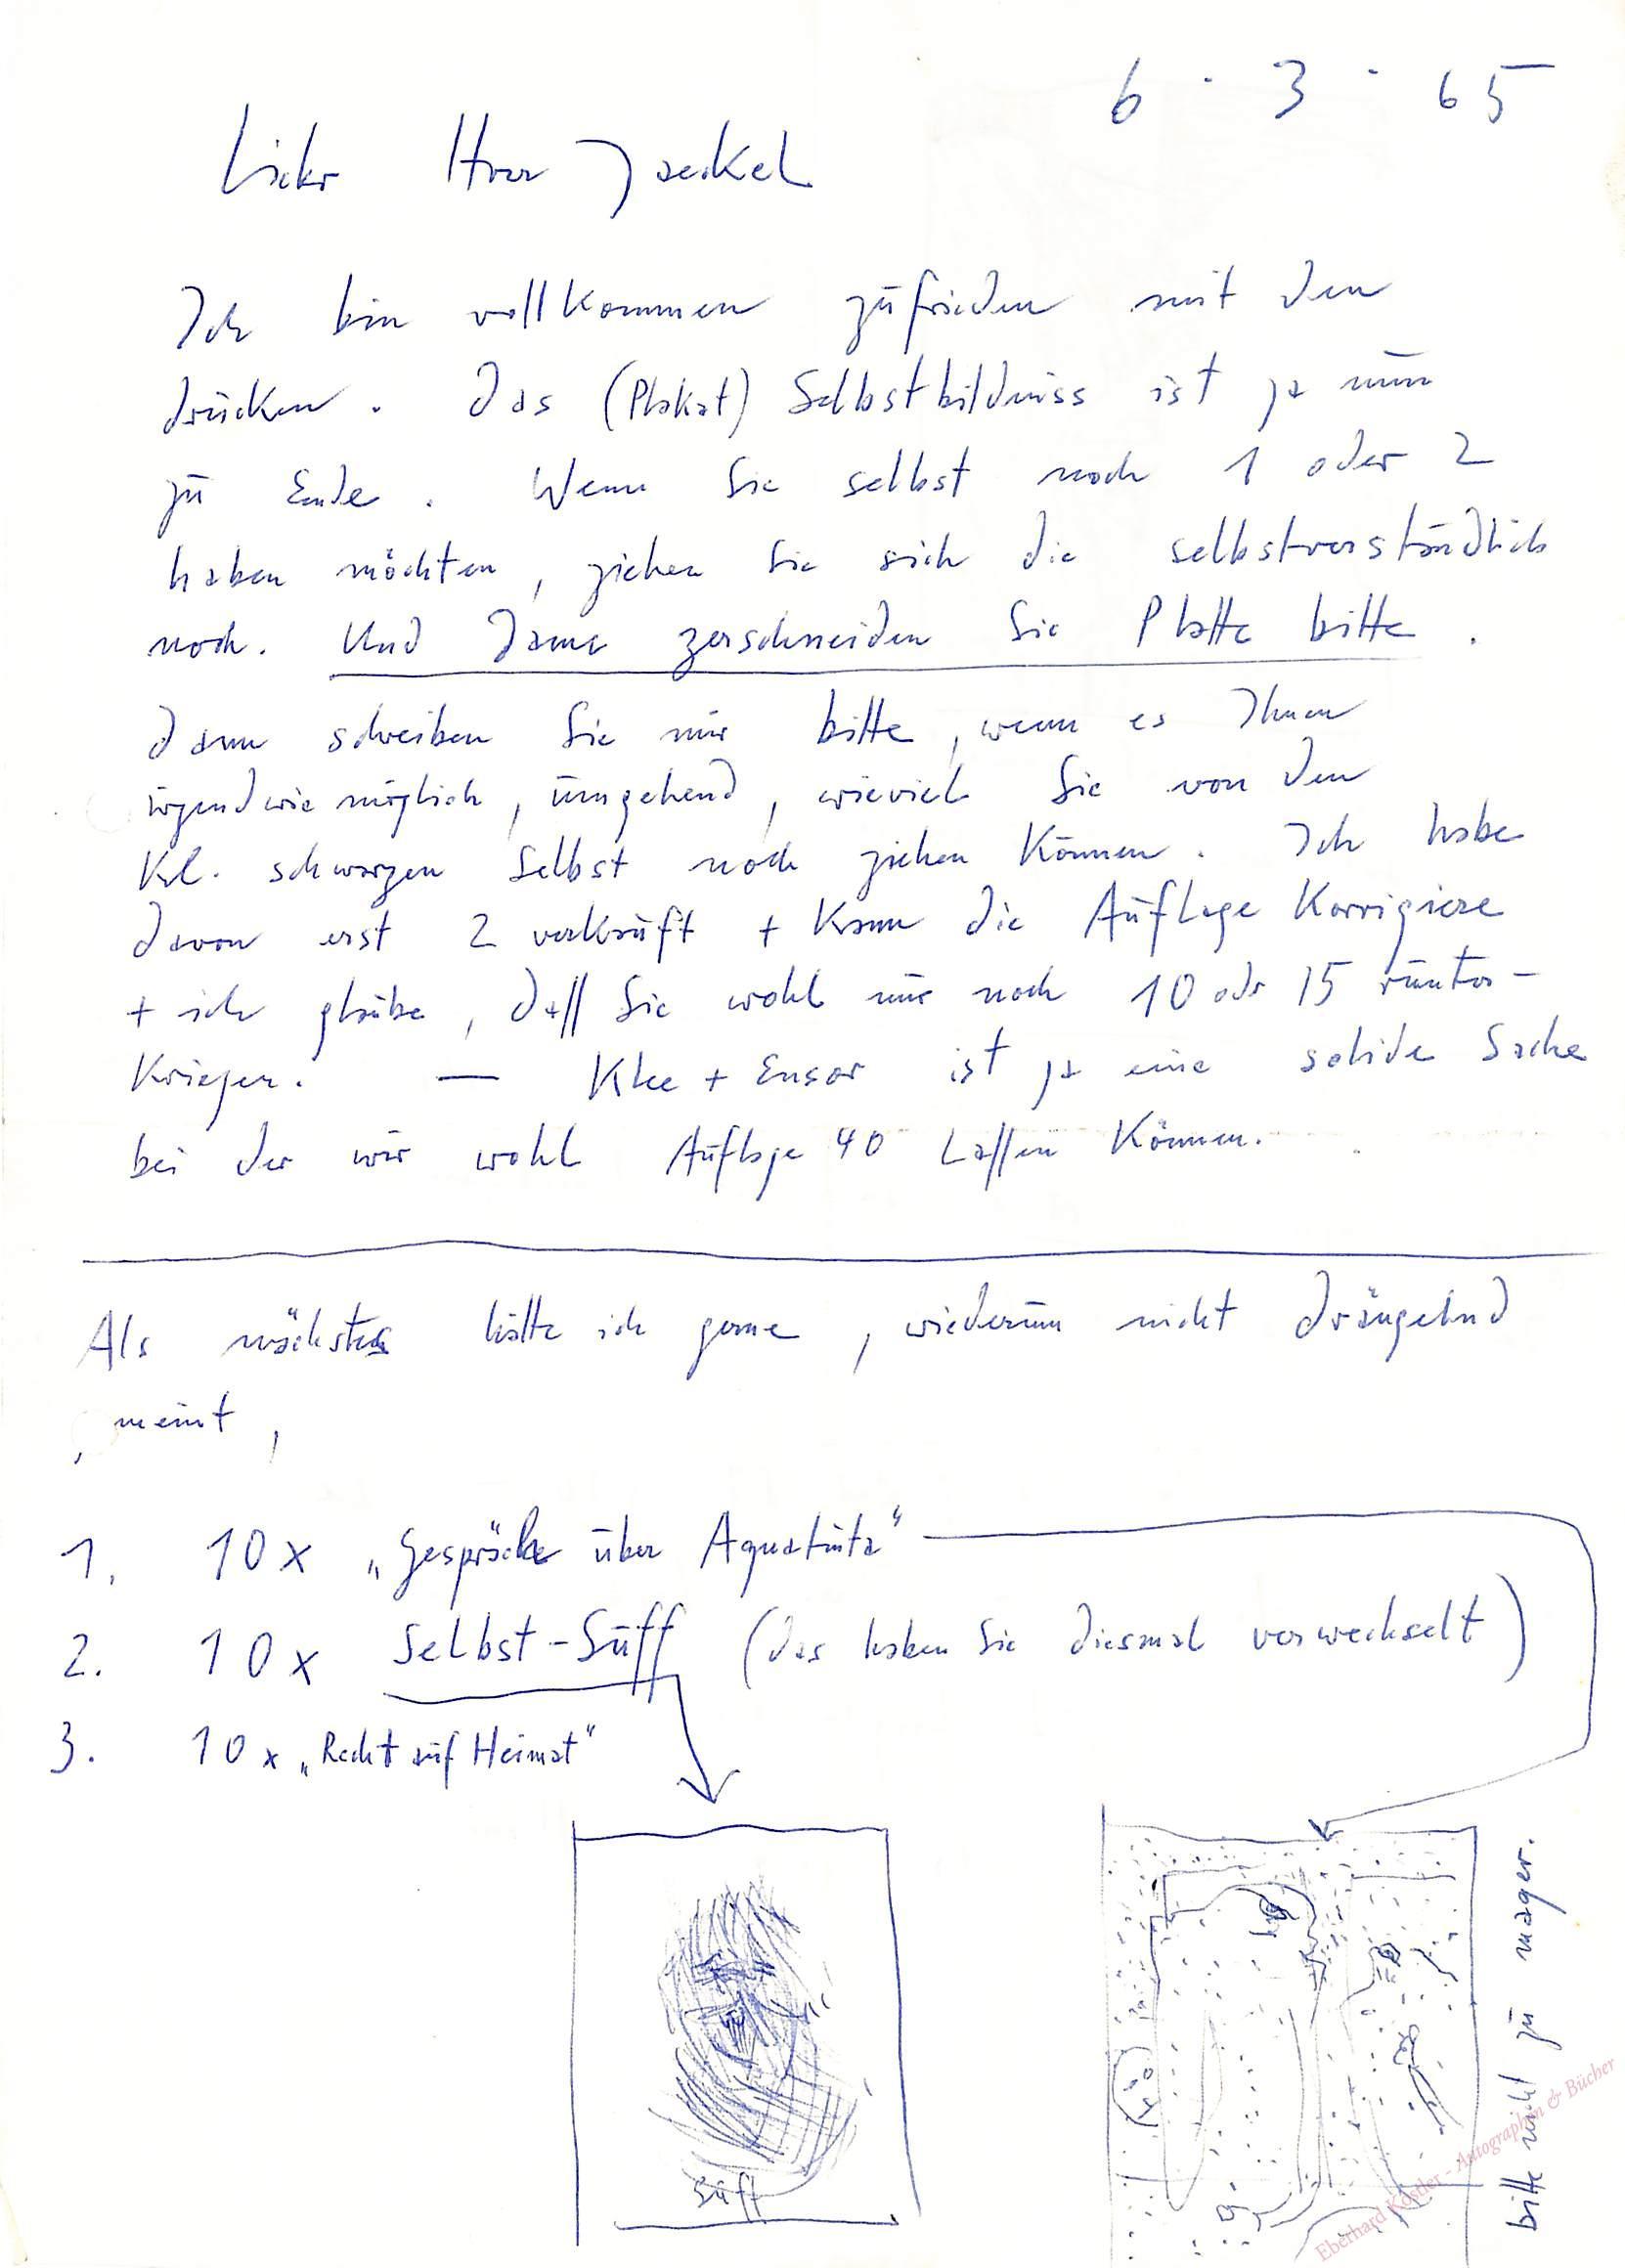 6. 3. 65
Lieber Herr Jaeckel
Ich bin vollkommen zufrieden mit den
drucken. das (Plakat) Selbstbildniss ist ja nun
zu Ende. Wenn Sie selbst noch 1 oder 2
haben möchten, ziehen Sie sich die selbstverständlich
noch. Und dann zerschneiden Sie Platte bitte.
dann schreiben Sie mir bitte, wenn es Ihnen
irgendwie möglich, umgehend, wieviel Sie von den
Kl. schwarzen Selbst noch ziehen Können. Ich habe
davon erst 2 verkauft + Kann die Auflage Korrigiere
+ ich glaube, daß Sie wohl nur noch 10 oder 15 runter-
Kriegen. — Klee + Ensor ist ja eine solide Sache
bei der wir wohl Auflage 40 Laßen Können.
Als nächstes hätte ich gerne, wiederum nicht drängelnd
, meint,
1. 10 x „Gespräche über Aquatinta"
2. 10 x Selbst-Suff (das haben Sie diesmal verwechselt)
3. 10 x „Recht auf Heimat"
Suff
bitte nicht zu mager.
Eberhard Köstler - Autographen & Bücher